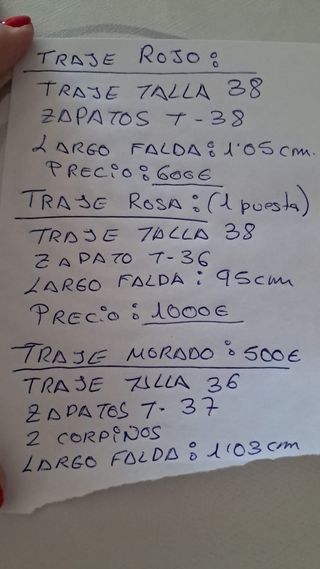 TRAJE ROJO:
TRAJE TALLA 38
ZAPATOS T-38
LARGO FALDA: 1'05cm.
PRECIO: 600€
TRAJE ROSA: (1 puesta)
TRAJE TALLA 38
ZAPATO T-36
LARGO FALDA: 95cm
PRECIO: 1000€
TRAJE MORADO: 500€
TRAJE TALLA 36
ZAPATOS T-37
2 CORPIÑOS
LARGO FALDA: 1'03cm